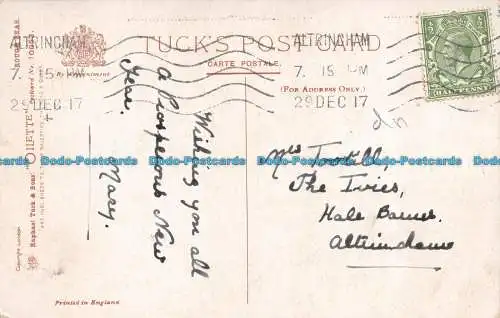 TUCK'S POST CARD
CARTE POSTALE.
By Appointment
(FOR ADDRESS ONLY.)
ALTRINCHAM
7. 15 PM
29 DEC 17
ALTRINCHAM
7. 15 PM
29 DEC 17
Wishing you all
A Prosperous New
Year.
Mary.
Mrs Tootill,
The Ivies,
Hale Barns,
Altrincham
Raphael Tuck & Sons' "OILETTE"
Copyright London.
Printed in England
Dodo-Postcards Dodo-Postcards Dodo-Postcards Dodo-Postcards Dodo-Postcards